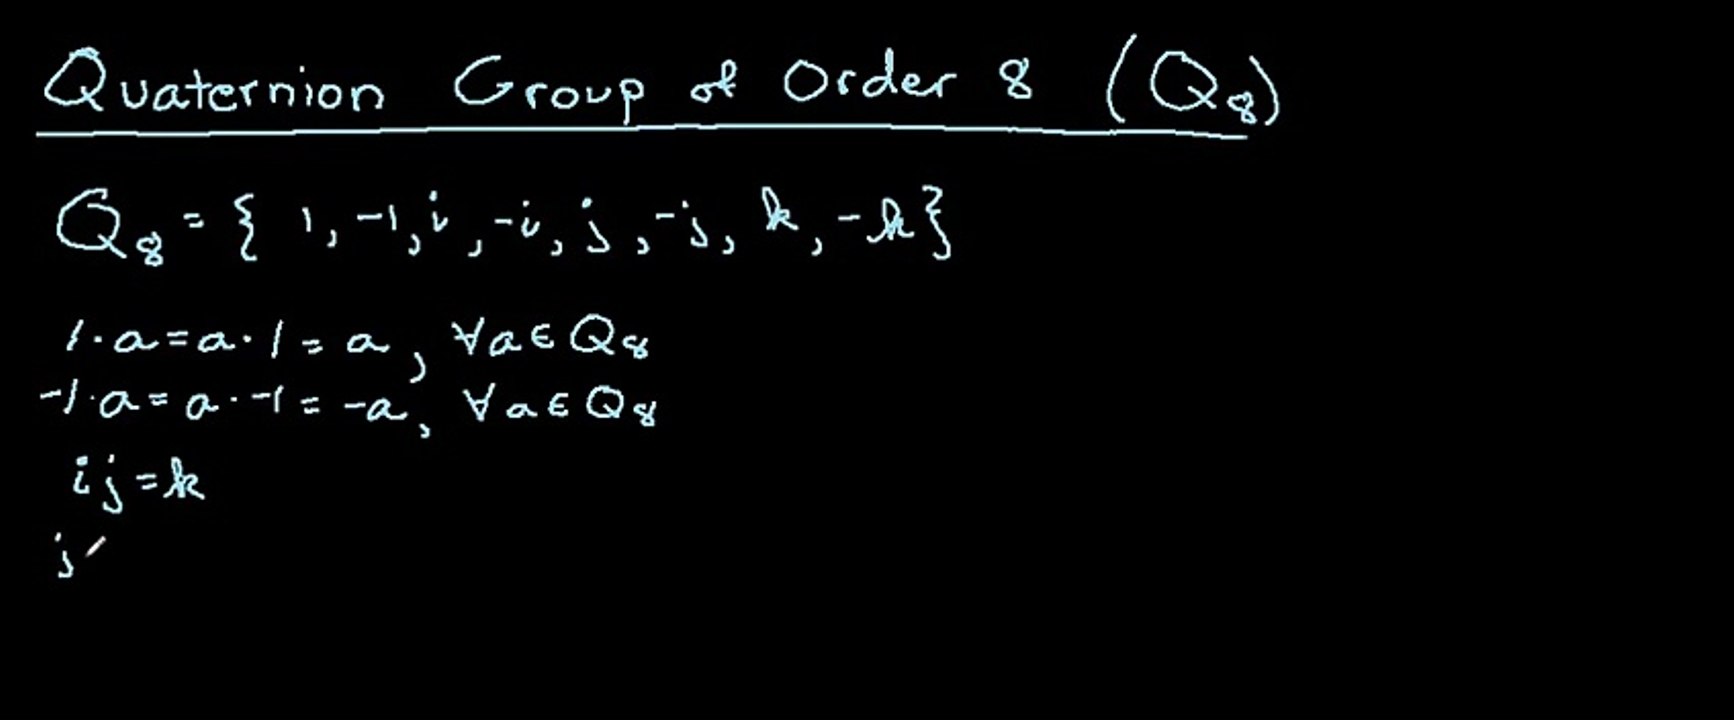 Quaternion Group of Order 8 (Q₈)
Q₈ = { 1, -1, i, -i, j, -j, k, -k}
1·a = a·1 = a, ∀a∈Q₈
-1·a = a·-1 = -a, ∀a∈Q₈
ij = k
j